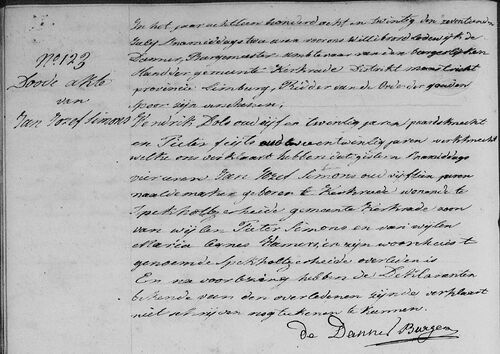 No 123
Doode akte
van
Jan Jozef Simons
In het jaar achttien honderd acht en twintig den zeventienden
July Snamiddags twee uren voor ons Willibrord Lodewijk de
Danner, Burgemeester ambtenaar van den burgerlijken
Stand der gemeente Kerkrade District maastricht
provincie Limburg, Ridder van de Orde der gouden
Spoor zijn verschenen;
Hendrik Dols oud vijf en twentig jaren paardsknecht
en Pieter oud twee en twentig jaren werkknecht
welke ons verklaart hebben dat gisteren Snamiddags
vier uren Jan Jozef Simons oud vijftien jaren
naaldemaker geboren te Kerkrade wonende te
Spekholtzerheide gemeente Kerkrade zoon
van wijlen Pieter Simons en van wijlen
Maria Agnes in zijn woonhuis t
genoemde Spekholtzerheide overleden is
En na voorlezing hebben de Deklaranten
bekende van den overledenen zijnde verklaart
niet schrijven nog tekenen te kunnen.
de Danner Burgem